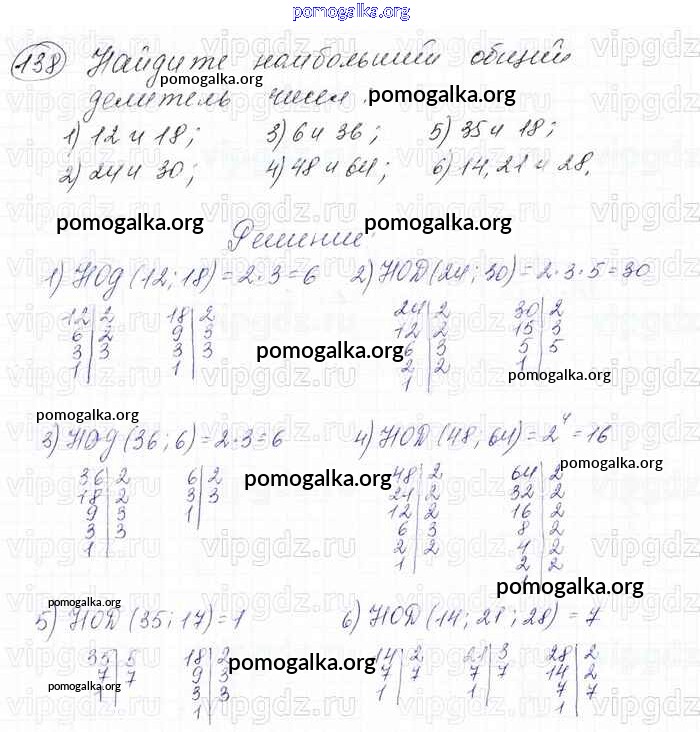 pomogalka.org
138 Найдите наибольший общий
pomogalka.org
делитель чисел.
pomogalka.org
1) 12 и 18; 3) 6 и 36; 5) 35 и 18;
2) 24 и 30; 4) 48 и 64; 6) 14, 21 и 28.
pomogalka.org pomogalka.org
Решение
1) НОД (12; 18) = 2·3 = 6 2) НОД (24; 30) = 2·3·5 = 30
12|2 18|2 24|2 30|2
6|2 9|3 12|2 15|3
3|3 3|3 6|3 5|5
1 1 2|2 1
1
pomogalka.org
pomogalka.org
pomogalka.org
3) НОД (36; 6) = 2·3 = 6 4) НОД (48; 64) = 2⁴ = 16
pomogalka.org
36|2 6|2 48|2 64|2
18|2 3|3 24|2 32|2
9|3 1 12|2 16|2
3|3 6|3 8|2
1 2|2 4|2
1 2|2
pomogalka.org
pomogalka.org
pomogalka.org
pomogalka.org
5) НОД (35; 17) = 1 6) НОД (14; 21; 28) = 7
35|5 18|2 14|2 21|3 28|2
7|7 9|3 7|7 7|7 14|2
3|3 1 1 7|7
1 1
pomogalka.org
pomogalka.org
pomogalka.org
vipgdz.ru